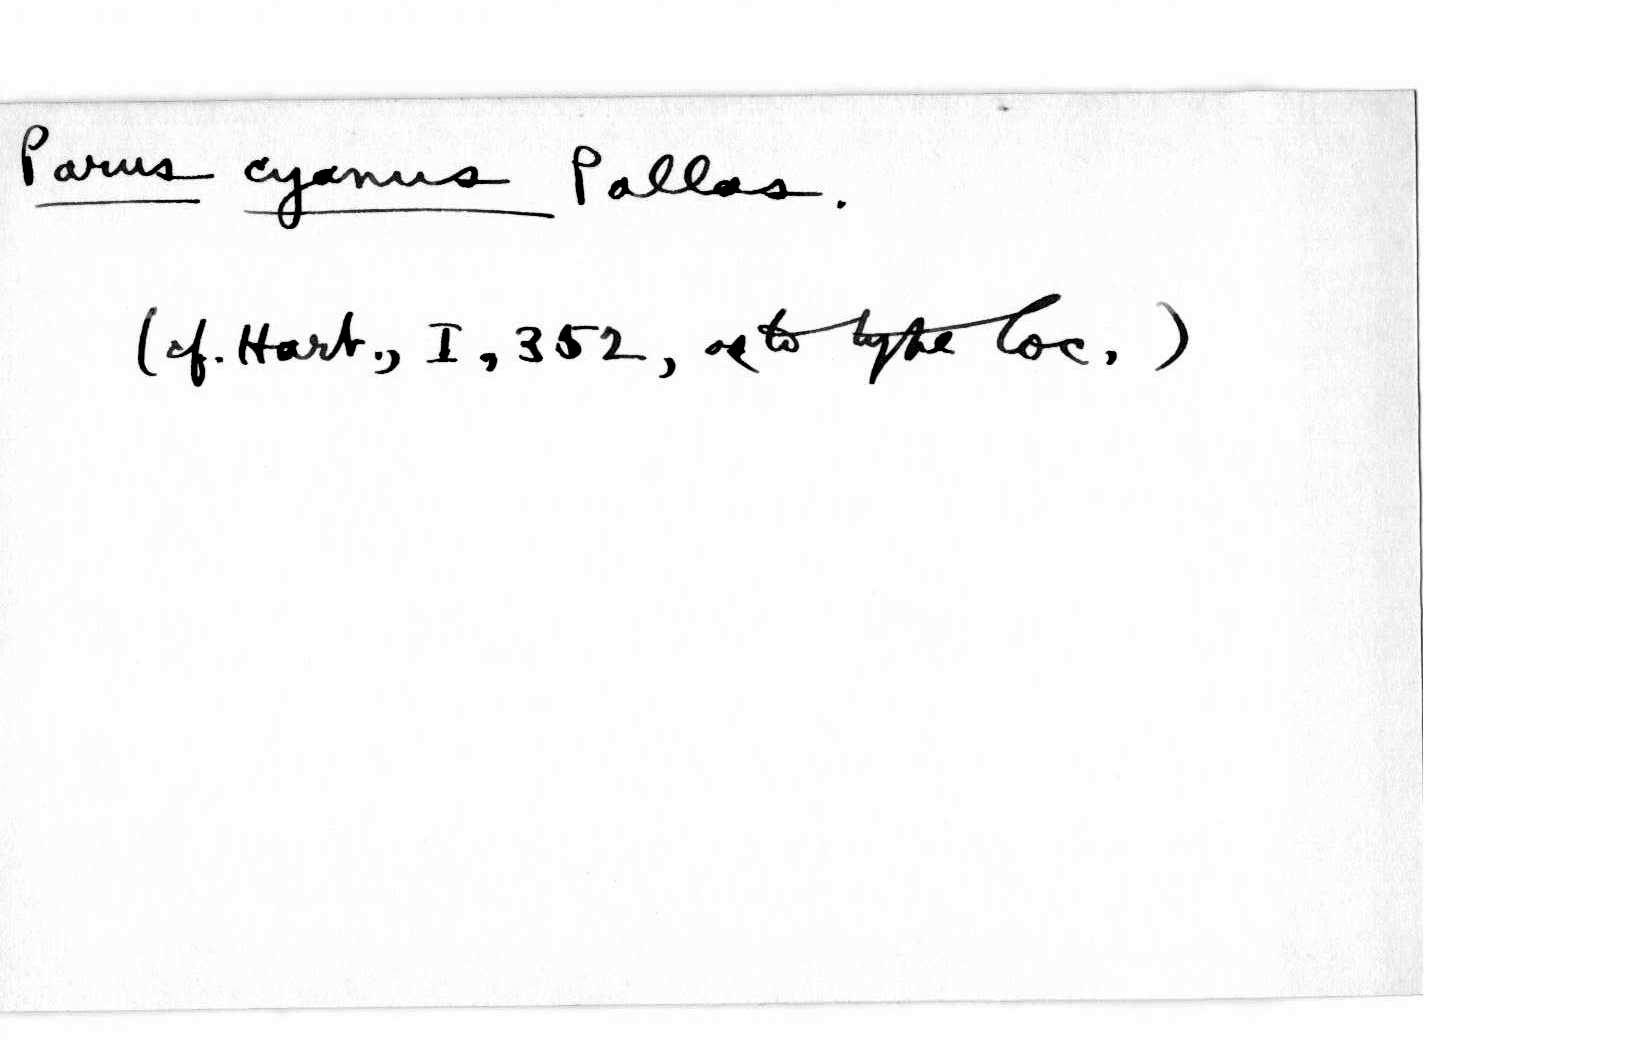 Parus cyanus Pallas.
(cf. Hart., I, 352, as to type loc.)